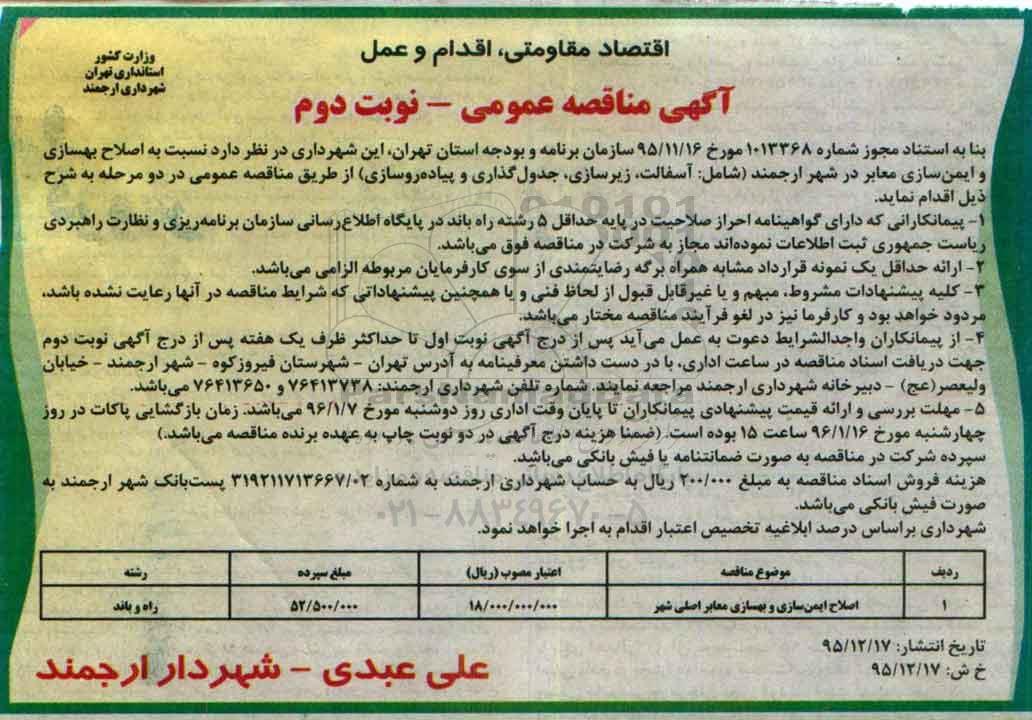 اقتصاد مقاومتی، اقدام و عمل
وزارت کشور
استانداری تهران
شهرداری ارجمند
آگهی مناقصه عمومی – نوبت دوم
بنا به استناد مجوز شماره ۱۰۱۳۳۶۸ مورخ ۹۵/۱۱/۱۶ سازمان برنامه و بودجه استان تهران، این شهرداری در نظر دارد نسبت به اصلاح بهسازی
و ایمن‌سازی معابر در شهر ارجمند (شامل: آسفالت، زیرسازی، جدول‌گذاری و پیاده‌روسازی) از طریق مناقصه عمومی در دو مرحله به شرح
ذیل اقدام نماید.
۱- پیمانکارانی که دارای گواهینامه احراز صلاحیت در پایه حداقل ۵ رشته راه باند در پایگاه اطلاع‌رسانی سازمان برنامه‌ریزی و نظارت راهبردی
ریاست جمهوری ثبت اطلاعات نموده‌اند مجاز به شرکت در مناقصه فوق می‌باشد.
۲- ارائه حداقل یک نمونه قرارداد مشابه همراه برگه رضایتمندی از سوی کارفرمایان مربوطه الزامی می‌باشد.
۳- کلیه پیشنهادات مشروط، مبهم و یا غیرقابل قبول از لحاظ فنی و یا همچنین پیشنهاداتی که شرایط مناقصه در آنها رعایت نشده باشد،
مردود خواهد بود و کارفرما نیز در لغو فرآیند مناقصه مختار می‌باشد.
۴- از پیمانکاران واجدالشرایط دعوت به عمل می‌آید پس از درج آگهی نوبت اول تا حداکثر ظرف یک هفته پس از درج آگهی نوبت دوم
جهت دریافت اسناد مناقصه در ساعت اداری، با در دست داشتن معرفینامه به آدرس تهران – شهرستان فیروزکوه – شهر ارجمند – خیابان
ولیعصر(عج) – دبیرخانه شهرداری ارجمند مراجعه نمایند. شماره تلفن شهرداری ارجمند: ۷۶۴۱۳۷۳۸ و ۷۶۴۱۳۶۵۰ می‌باشد.
۵- مهلت بررسی و ارائه قیمت پیشنهادی پیمانکاران تا پایان وقت اداری روز دوشنبه مورخ ۹۶/۱/۷ می‌باشد. زمان بازگشایی پاکات در روز
چهارشنبه مورخ ۹۶/۱/۱۶ ساعت ۱۵ بوده است. (ضمنا هزینه درج آگهی در دو نوبت چاپ به عهده برنده مناقصه می‌باشد.)
سپرده شرکت در مناقصه به صورت ضمانتنامه یا فیش بانکی می‌باشد.
هزینه فروش اسناد مناقصه به مبلغ ۲۰۰/۰۰۰ ریال به حساب شهرداری ارجمند به شماره ۳۱۹۲۱۱۷۱۳۶۶۷/۰۲ پست‌بانک شهر ارجمند به
صورت فیش بانکی می‌باشد.
شهرداری براساس درصد ابلاغیه تخصیص اعتبار اقدام به اجرا خواهد نمود.
ردیف موضوع مناقصه اعتبار مصوب (ریال) مبلغ سپرده رشته
۱ اصلاح ایمن‌سازی و بهسازی معابر اصلی شهر ۱۸/۰۰۰/۰۰۰/۰۰۰ ۵۲/۵۰۰/۰۰۰ راه و باند
تاریخ انتشار: ۹۵/۱۲/۱۷
خ ش: ۹۵/۱۲/۱۷
علی عبدی – شهردار ارجمند
۰۲۱-۸۸۳۴۹۶۷۰-۵